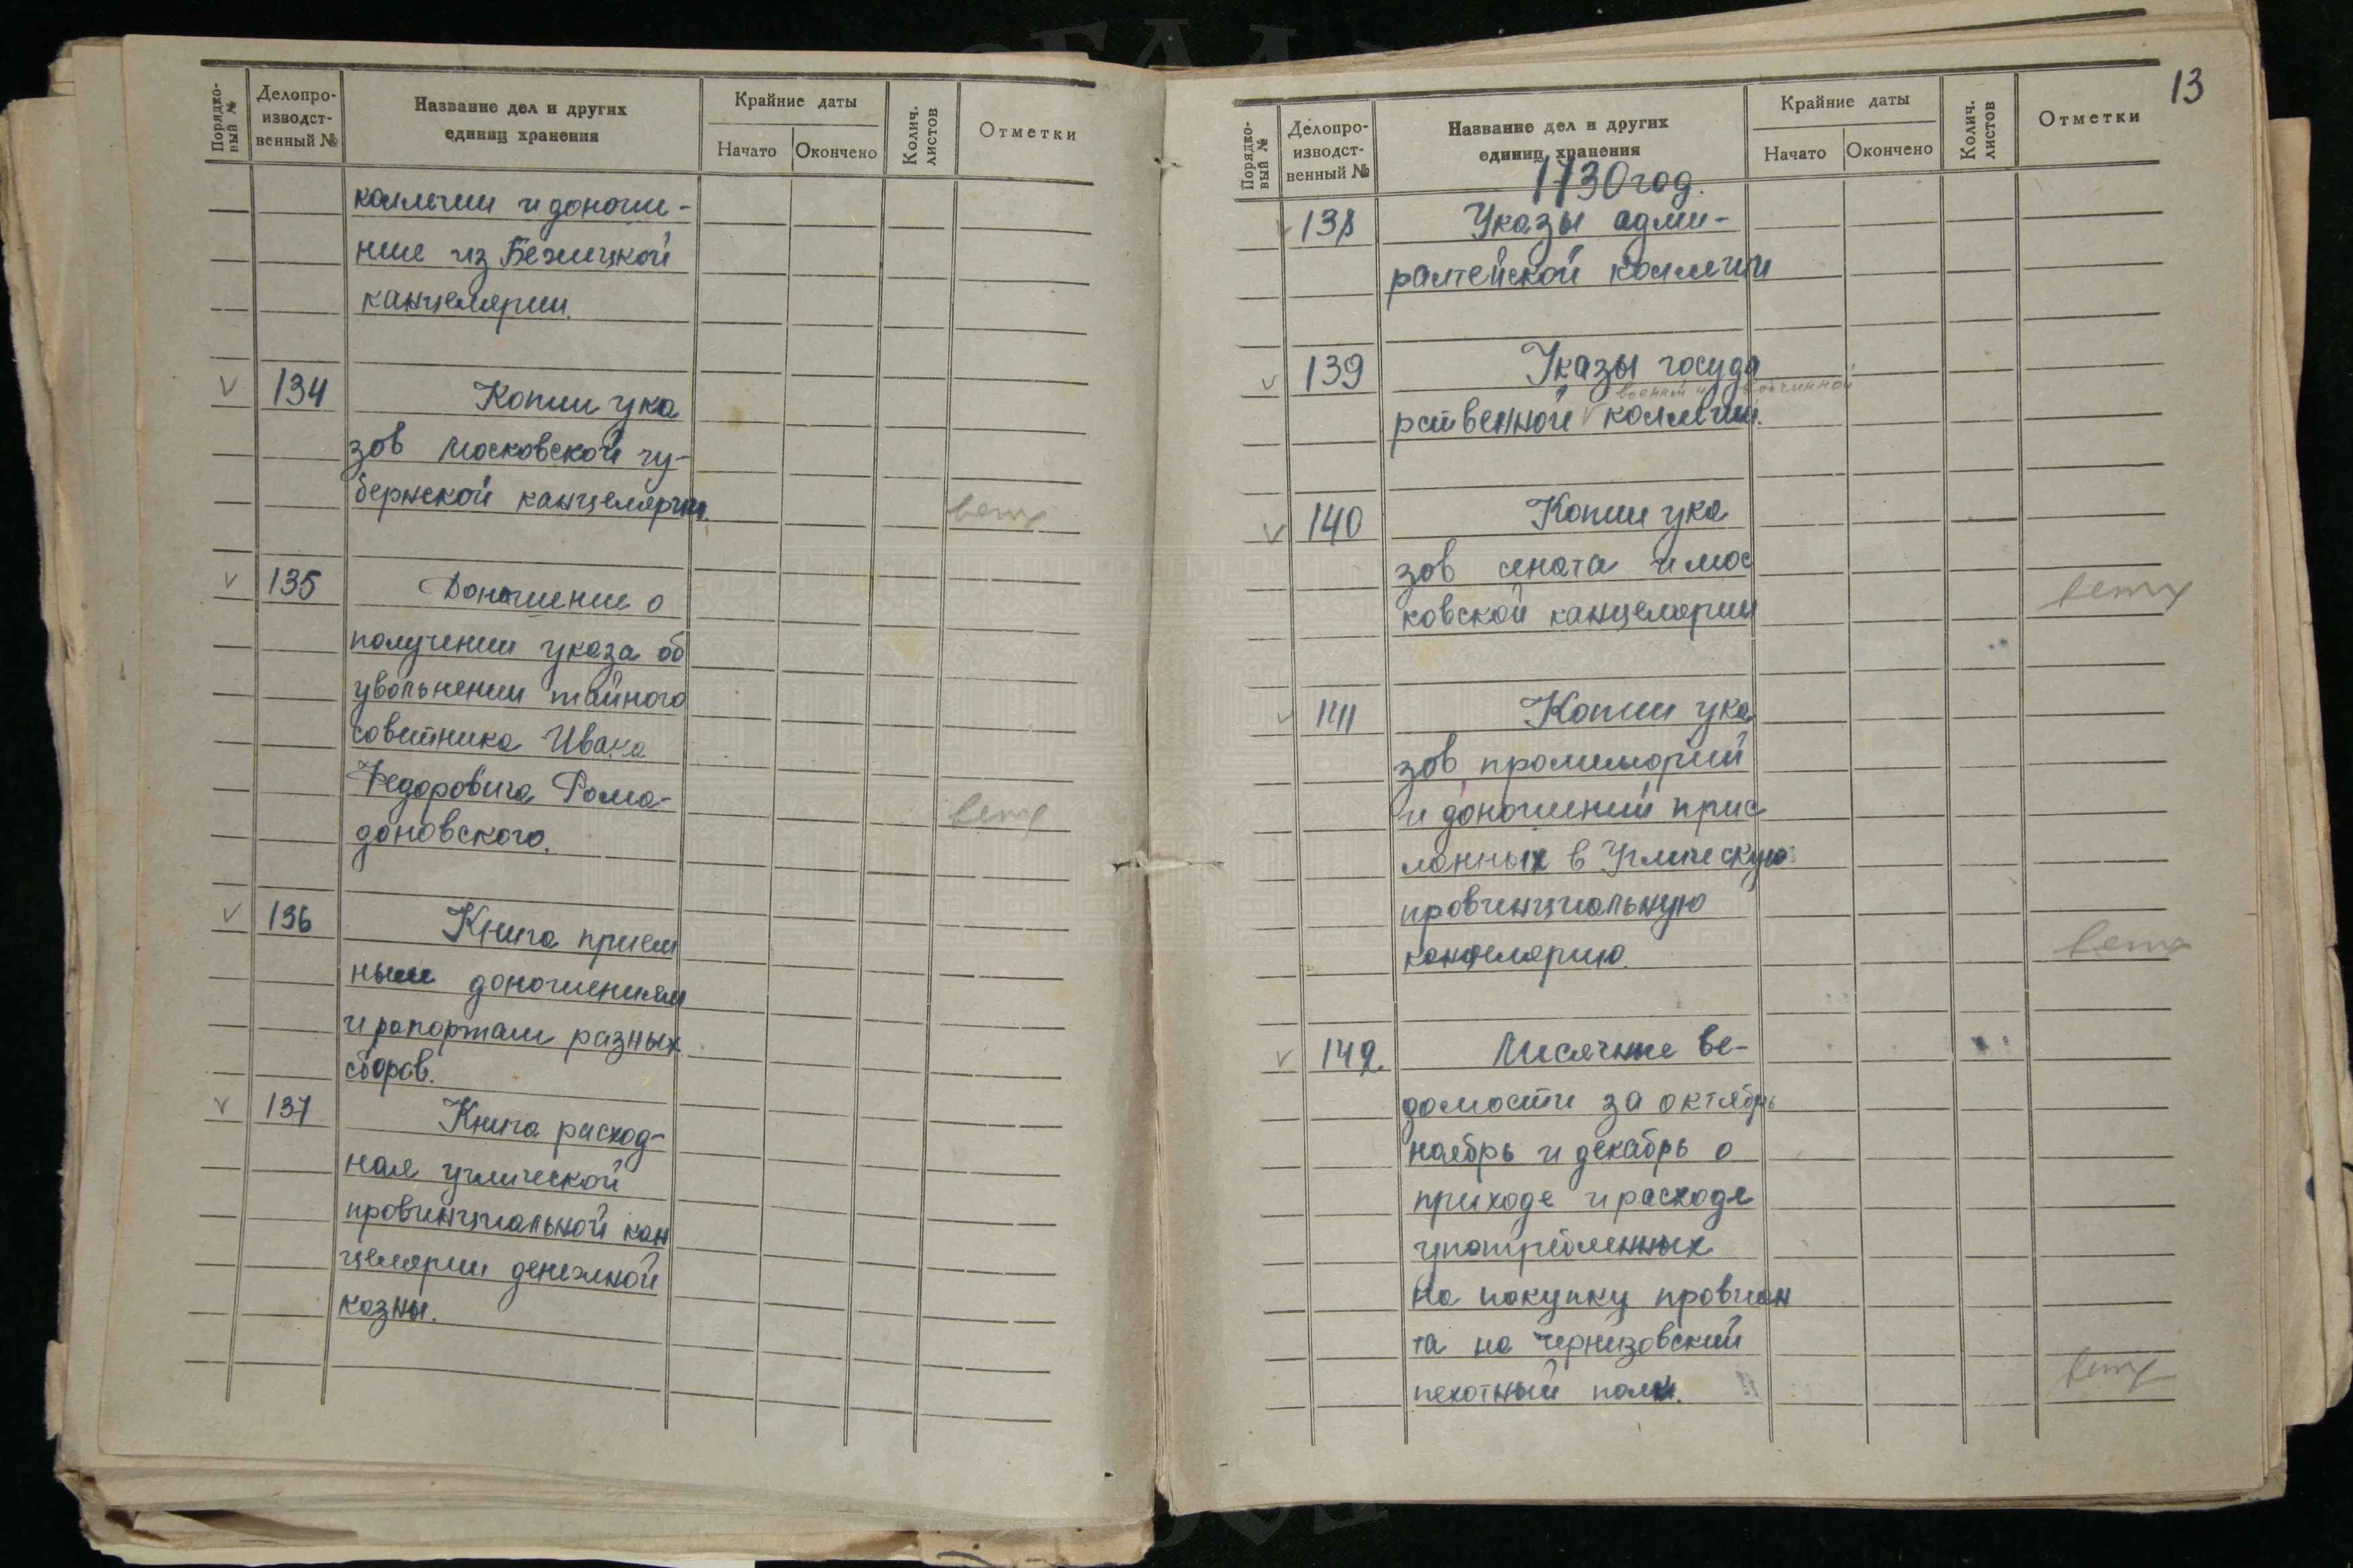 Порядко-
вый №
Делопро-
изводст-
венный №
Название дел и других
единиц хранения
Крайние даты
Начато
Окончено
Колич.
листов
Отметки
коллегии и доноше-
ние из Бежицкой
канцелярии.
134 Копии ука
зов Московской гу-
бернской канцелярии.
ветх
135 Доношение о
получении указа об
увольнении тайного
советника Ивана
Федоровича Рома-
доновского.
ветх
136 Книга прием
ным доношениям
и рапортам разных
сборов.
137 Книга расход-
ная углической
провинциальной кан
целярии денежной
казны.
13
Порядко-
вый №
Делопро-
изводст-
венный №
Название дел и других
единиц хранения
Крайние даты
Начато
Окончено
Колич.
листов
Отметки
1730 год.
138 Указы адми-
ралтейской коллегии
139 Указы госуда
военной и вотчинной
рственной коллегии.
140 Копии ука
зов сената и мос
ковской канцелярии
ветх
141 Копии ука
зов, промеморий
и доношений прис
ланных в Углическую
провинциальную
канцелярию.
ветх
142. Месячные ве-
домости за октябрь
ноябрь и декабрь о
приходе и расходе
употребленных
на покупку провиан
та на чернизовский
пехотный полк.
ветх